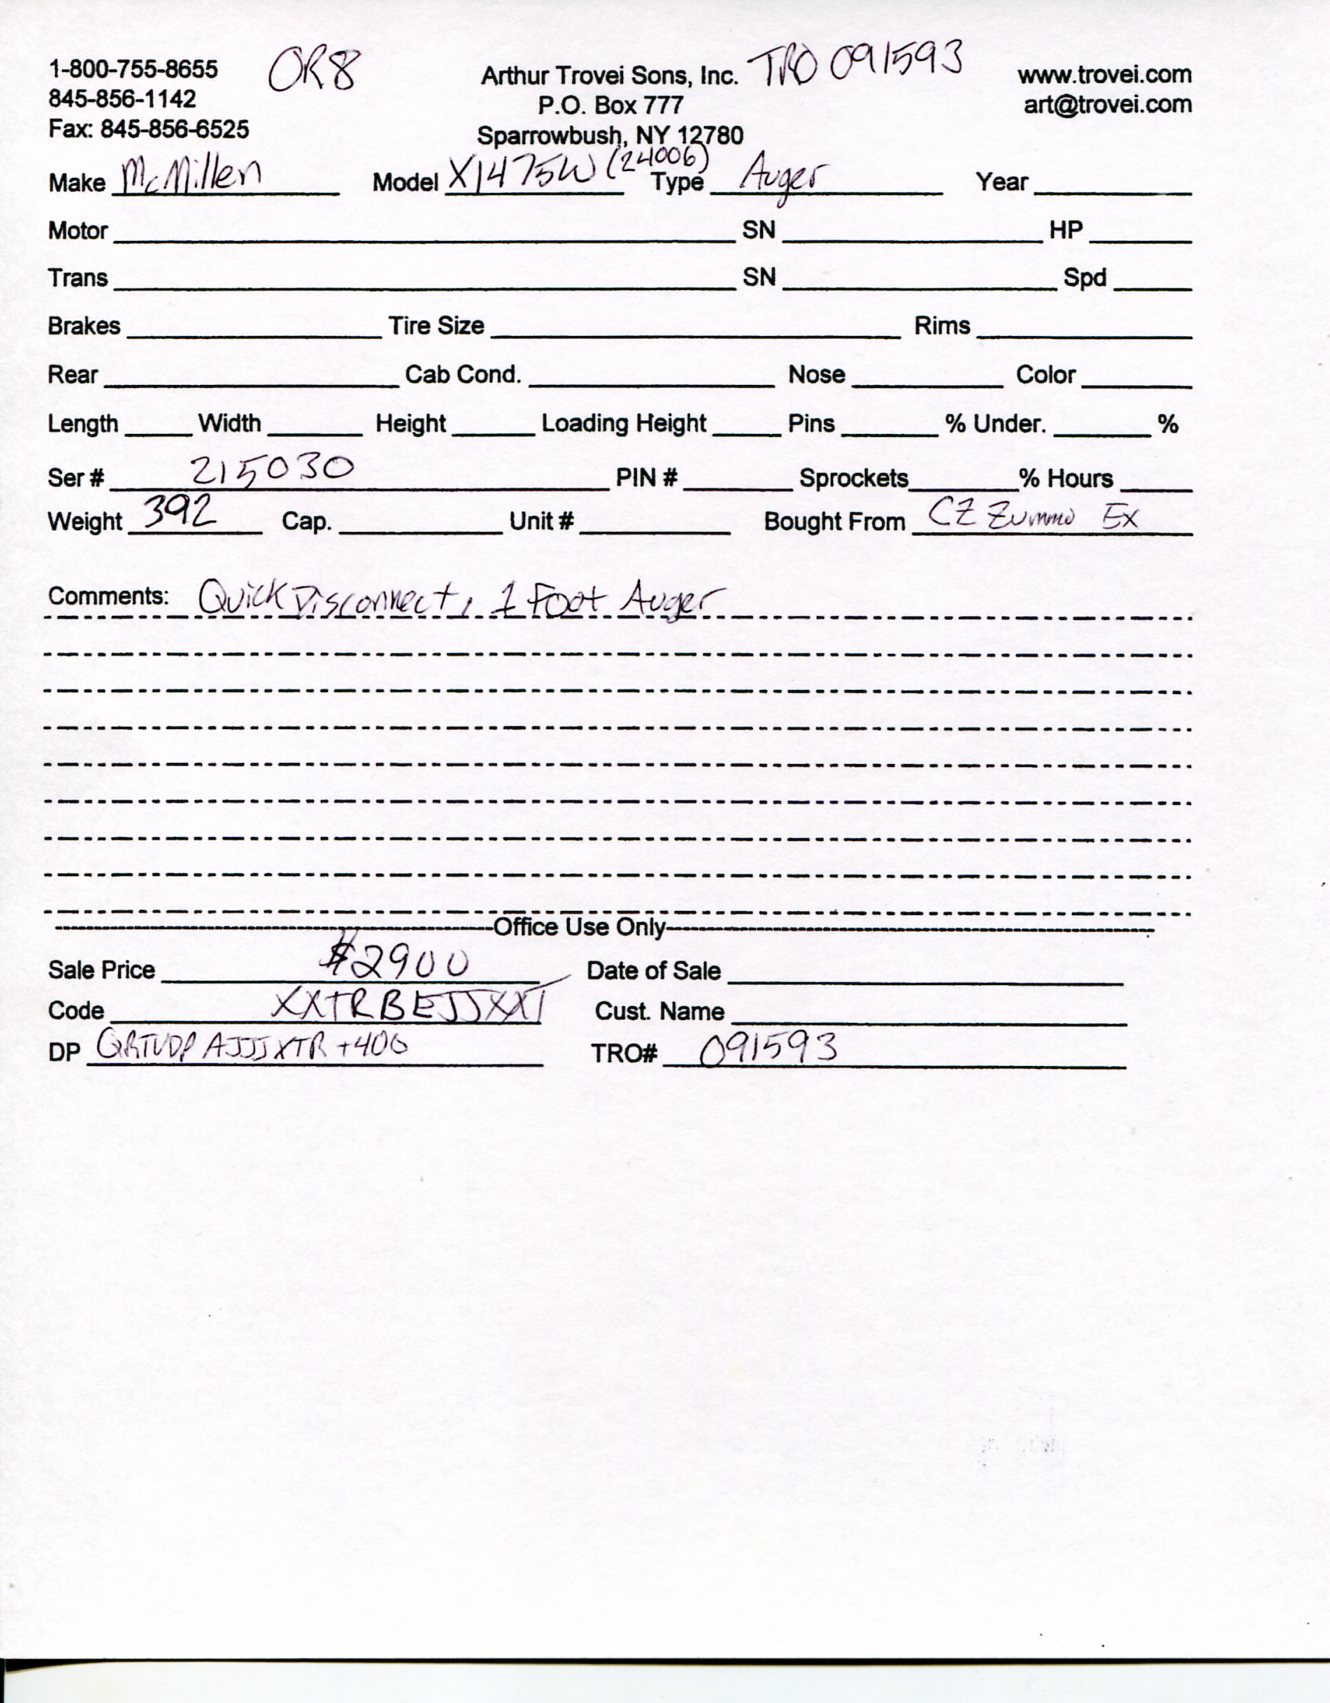 1-800-755-8655 OR8 Arthur Trovei Sons, Inc. TRO 091593 www.trovei.com
845-856-1142 P.O. Box 777 art@trovei.com
Fax: 845-856-6525 Sparrowbush, NY 12780
Make McMillen Model X1475W (24006) Type Auger Year
Motor SN HP
Trans SN Spd
Brakes Tire Size Rims
Rear Cab Cond. Nose Color
Length Width Height Loading Height Pins % Under. %
Ser # 215030 PIN # Sprockets % Hours
Weight 392 Cap. Unit # Bought From CZ Zummo Ex
Comments: Quick Disconnect, 1 Foot Auger
Office Use Only
Sale Price $2900 Date of Sale
Code XXTRBEJJXXT Cust. Name
DP AJJJXTR +400 TRO# 091593